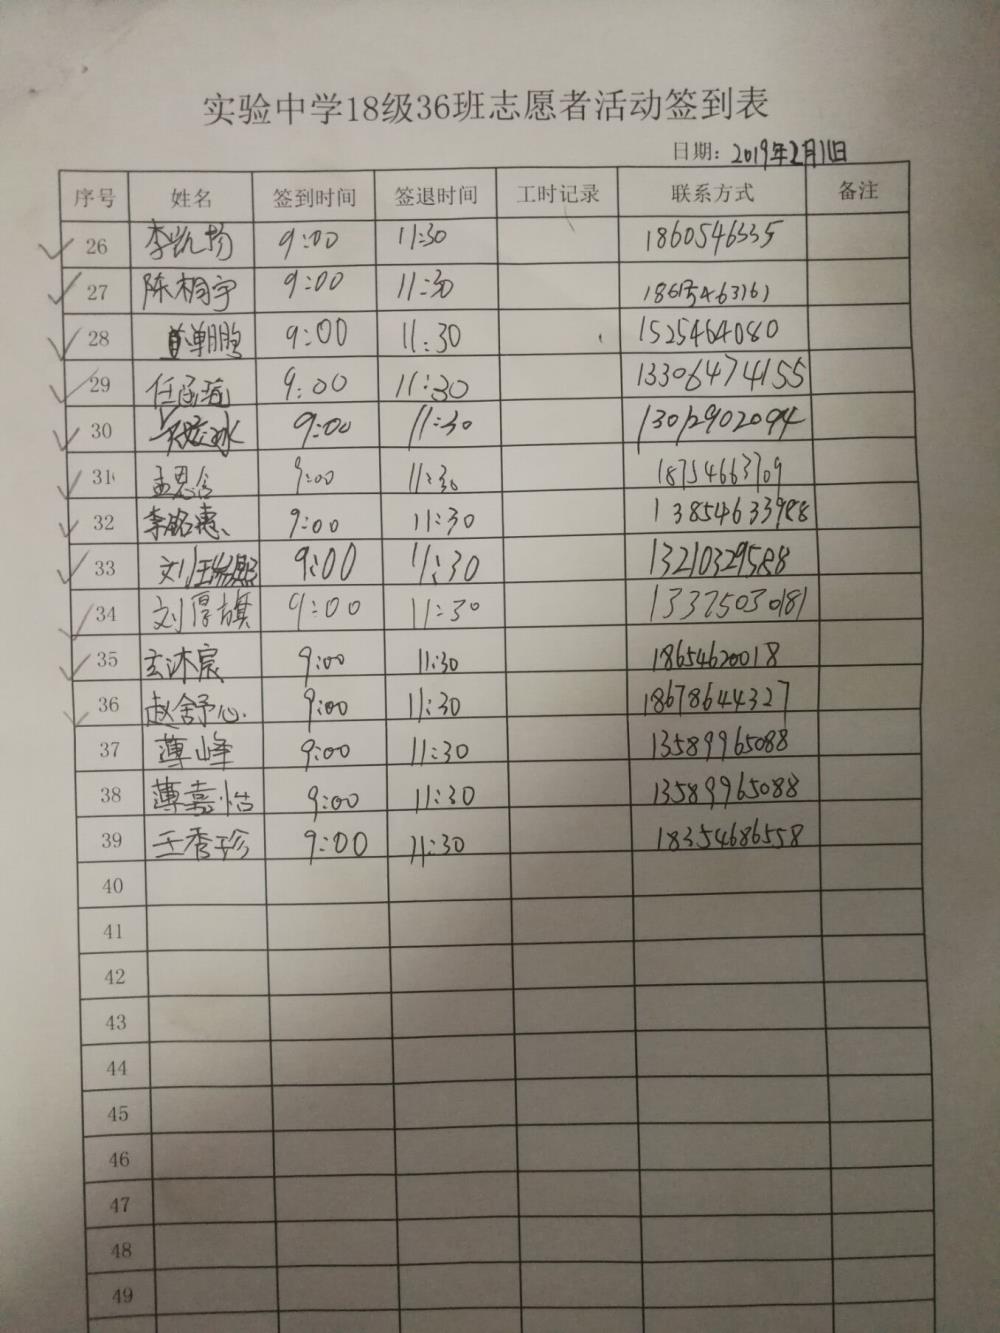 实验中学18级36班志愿者活动签到表
日期：2019年2月11日
序号 姓名 签到时间 签退时间 工时记录 联系方式 备注
26 李凯扬 9:00 11:30 1860546335
27 陈相宇 9:00 11:30
28 9:00 11:30 1525464080
29 任函蓝 9:00 11:30 13306474155
30 9:00 11:30 13012902094
31 孟思含 9:00 11:30 18754663709
32 李铭惠 9:00 11:30 13854633988
33 刘珏熙 9:00 11:30 13210329588
34 刘厚旗 9:00 11:30 13375030181
35 玄沐宸 9:00 11:30 18654620018
36 赵舒心 9:00 11:30 18678644327
37 薄峰 9:00 11:30 13589965088
38 薄嘉怡 9:00 11:30 13589965088
39 王秀珍 9:00 11:30 18354686558
40
41
42
43
44
45
46
47
48
49